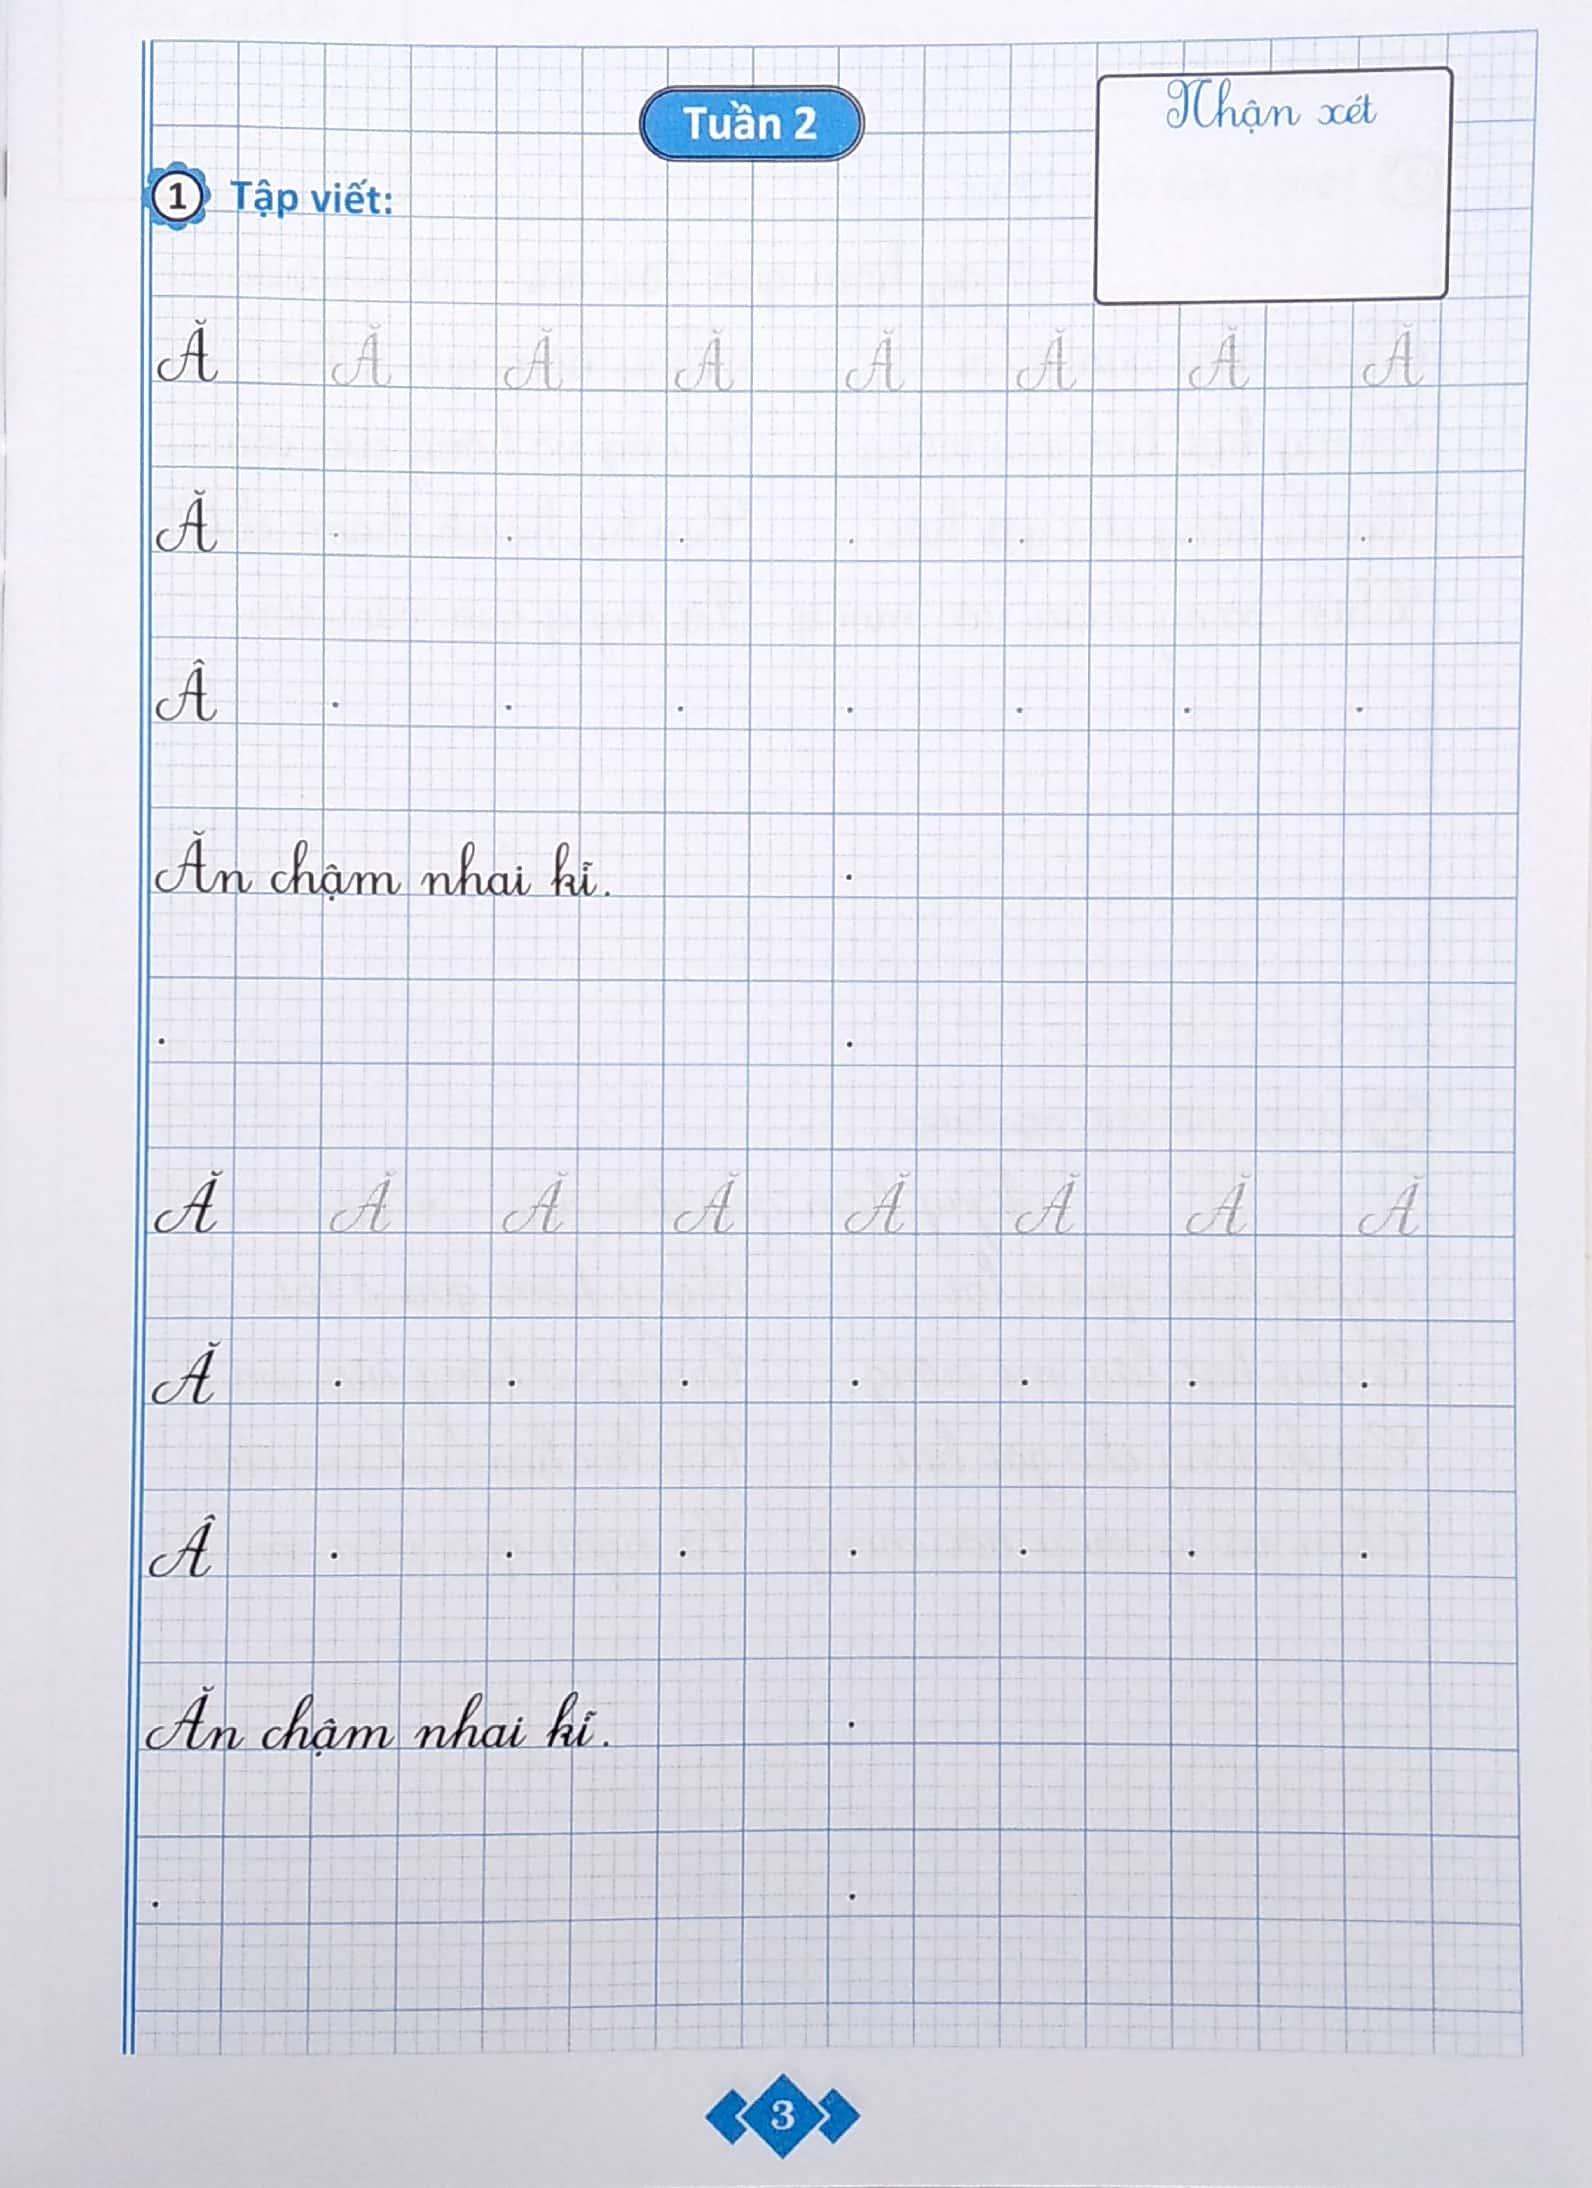 Tuần 2
Nhận xét
1 Tập viết:
Ă Ă Ă Ă Ă Ă Ă Ă
Ă . . . . . . .
Â . . . . . . .
Ăn chậm nhai kĩ. .
. .
Ă Ă Ă Ă Ă Ă Ă Ă
Ă . . . . . . .
Â . . . . . . .
Ăn chậm nhai kĩ. .
. .
3